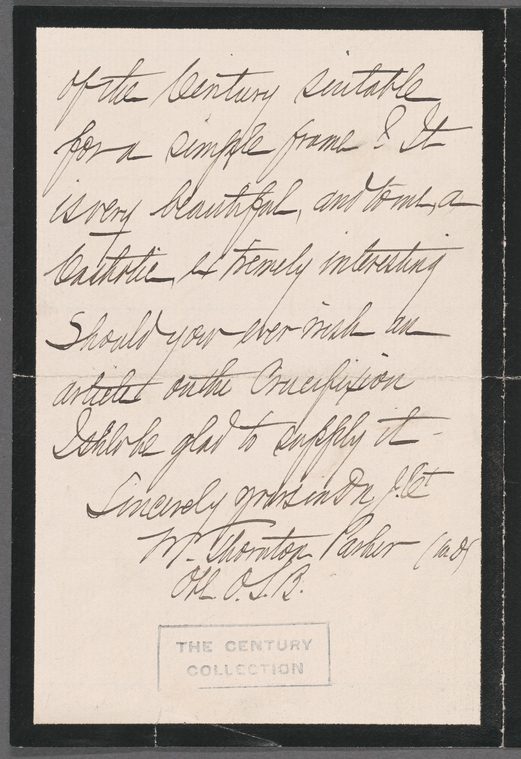 of the Century suitable
for a simple frame? It
is very beautiful, and to me, a
Catholic extremely interesting
Should you ever wish an
article on the Crucifixion
I shld be glad to supply it -
Sincerely yours in
W. Thornton Parker (M.D)
Obl. O.S.B.
THE CENTURY
COLLECTION